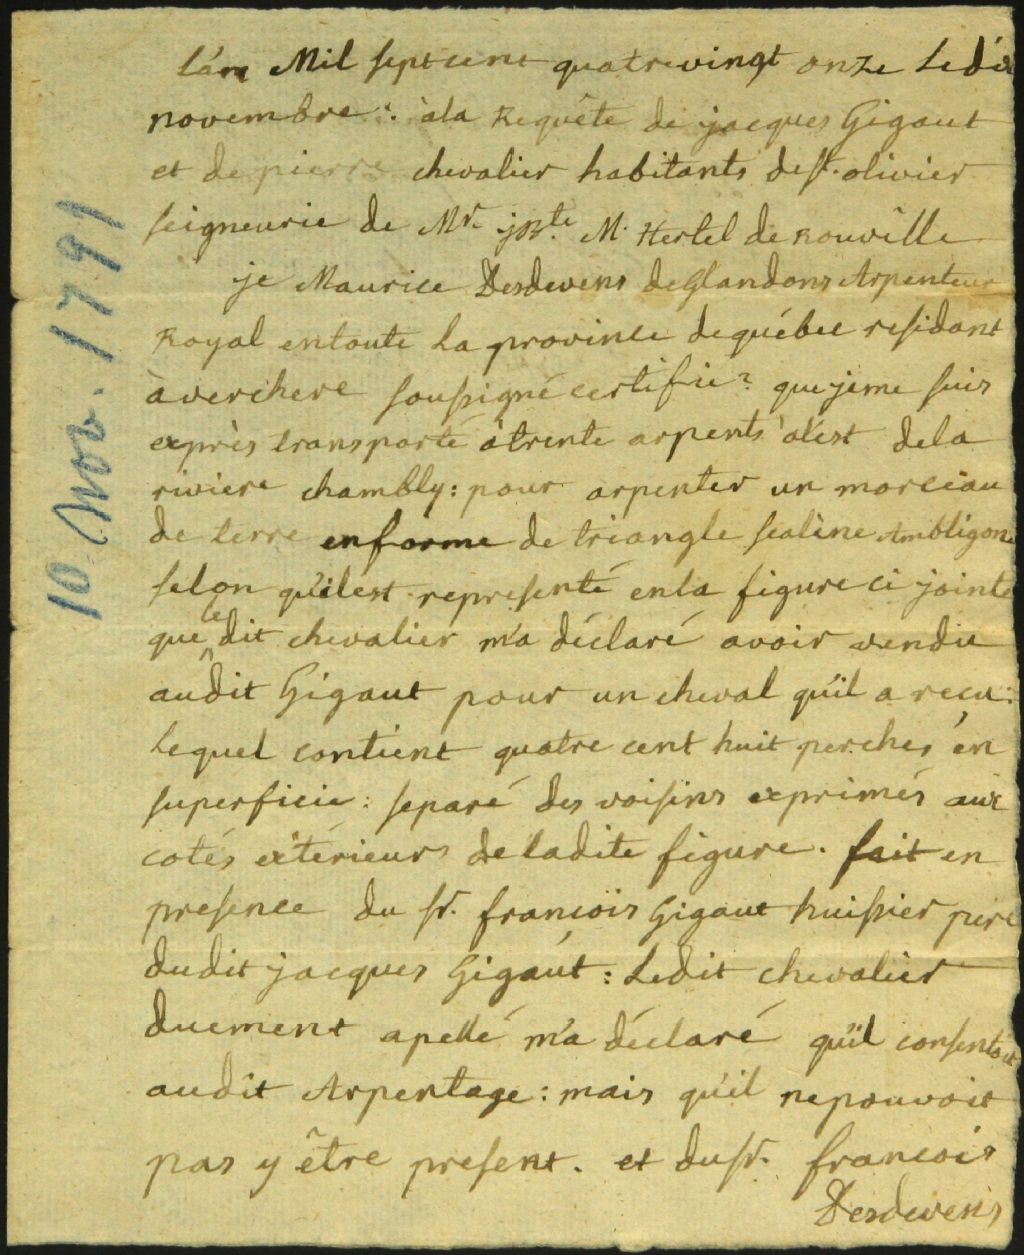 L'an Mil sept cent quatrevingt onze Le dix
novembre : à la Requête de jacques Gigaut
et de pierre chevalier habitants de st. olivier
seigneurie de Mr. jBte. M. Hertel de Rouville
je Maurice Desdevens de Glandons Arpenteur
Royal en toute La province de québec residant
à verchere soussigné certifie : que je me suis
exprès transporté à trente arpents à l'est de la
riviere chambly : pour arpenter un morceau
de terre en forme de triangle scalène Ambligone
selon qu'il est representé en la figure ci jointe
que le dit chevalier m'a déclaré avoir vendu
audit Gigaut pour un cheval qu'il a recu :
Lequel contient quatre cent huit perches en
superficie : separé des voisins exprimés aux
cotés extérieurs de ladite figure. fait en
presence du sr. francois Gigaut huissier pere
dudit jacques Gigaut : Ledit chevalier
duement apellé m'a déclaré qu'il consentoit
audit Arpentage : mais qu'il ne pouvoit
pas y être present. et du sr. francois
Desdevens
10 Nov. 1791